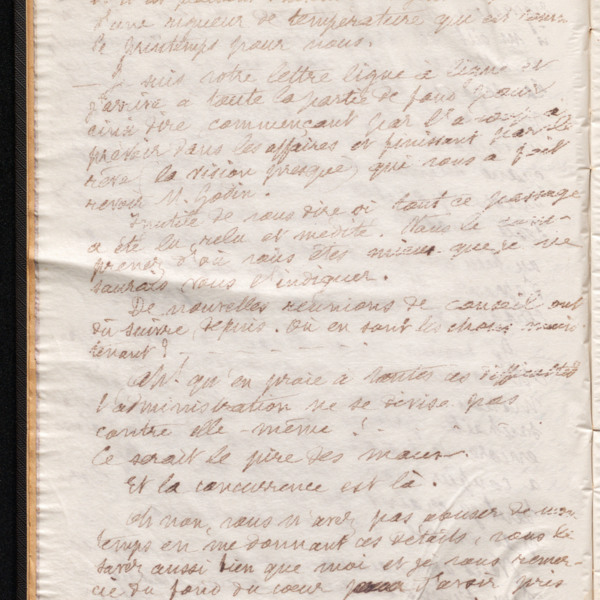 d'une rigueur de température qui est
le printemps pour nous.
Je suis votre lettre ligne à ligne et
j'arrive à toute la partie de fond pour
ainsi dire commençant par l'
prévoir dans les affaires et finissant par le
rêve (la vision presque) que vous a fait
revoir M. Godin.
Inutile de vous dire si tout ce passage
a été lu, relu et médité. Vous le
prenez d'où vous êtes mieux que je ne
saurais vous l'indiquer.
De nouvelles réunions de conseil ont
dû suivre, depuis. Où en sont les choses main
tenant?
Ah! qu'en proie à toutes ces difficultés
l'administration ne se divise pas
contre elle-même!
Ce serait le pire des maux.
Et la concurrence est là.
Oh non, vous n'avez pas abusé de mon
temps en me donnant ces détails, vous le
savez aussi bien que moi et je vous remer-
cie du fond du cœur d'avoir pris